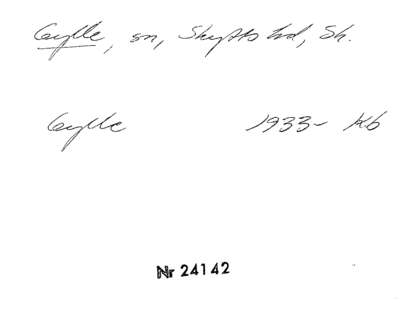 Gylle, sn, Skytts hd, Sk.
Gylle 1933- Kb
Nr 24142